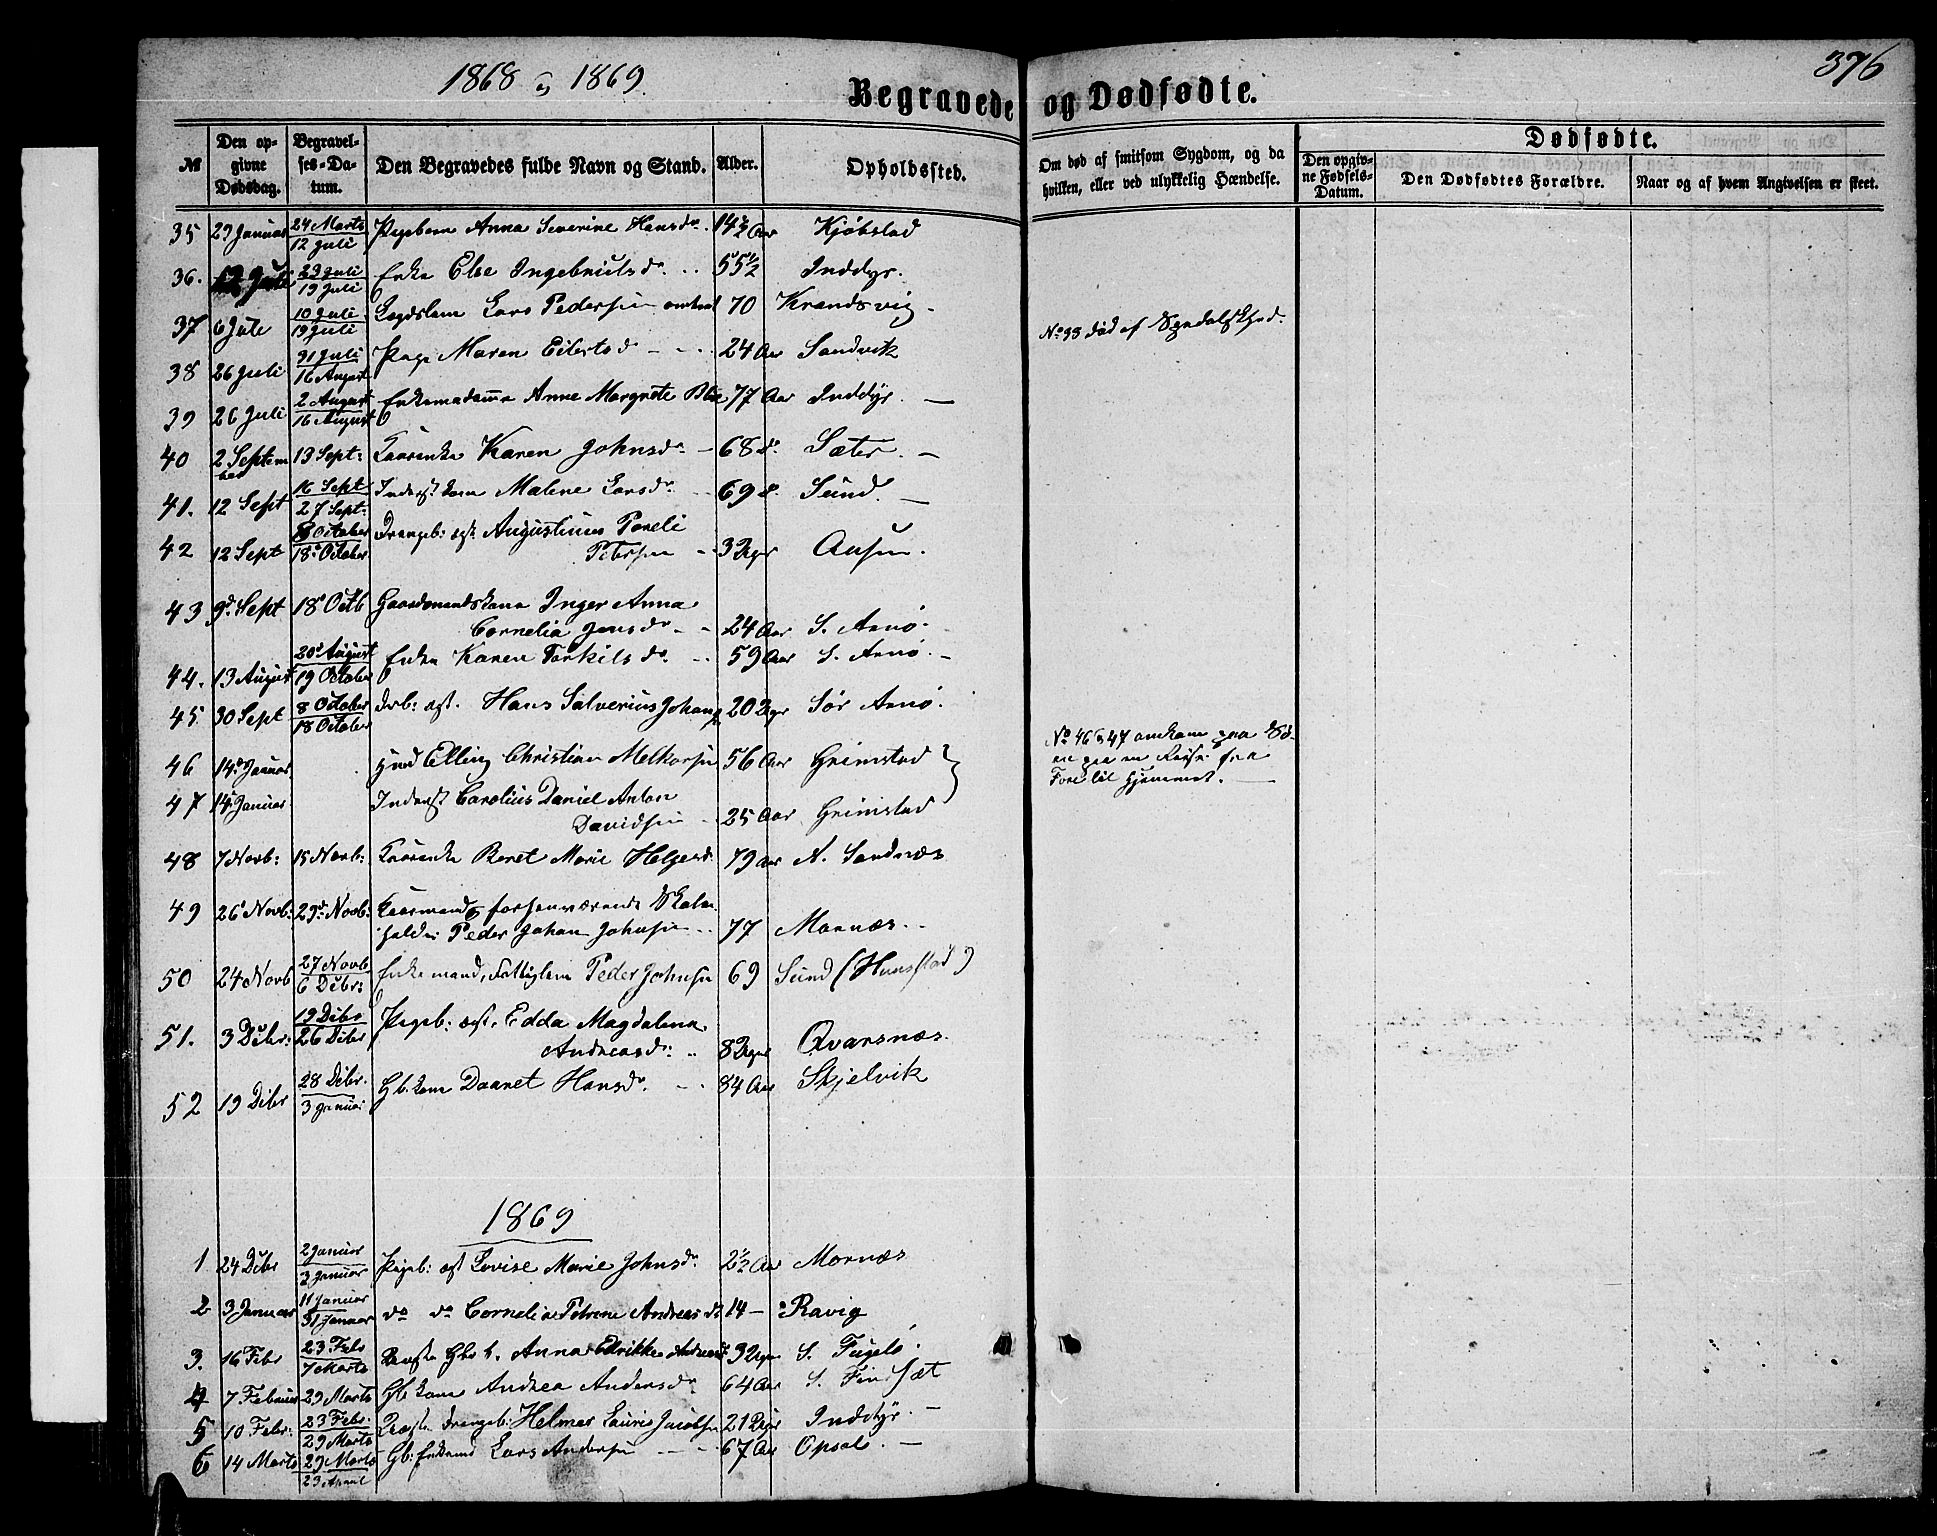 1868 & 1869
376
Begravede og Dødfødte.
№ Den opgivne Dødsdag. Begravelses-Datum. Den Begravedes fulde Navn og Stand. Alder. Opholdssted. Om død af smitsom Sygdom, og da hvilken, eller ved ulykkelig Hændelse. Dødfødte. Den opgivne Fødsels-Datum. Den Dødfødtes Forældre. Naar og af hvem Angivelsen er skeet.
35 29 Januar 24 Marts 12 Juli Pigebarn Anna Severine Hansdr. 14½ Aar Kjøbstad
36. 12 Juli 19 Juli Enke Else Ingebrigtsdr. 55½ Inddyr.
37 6 Juli 10 Juli 19 Juli Lægdslem Lars Pedersen omtrent 70 Krandsvig
38 26 Juli 31 Juli 16 August Pige Maren Eilertsd 24 Aar Sandvik
39 26 Juli 2 August 16 August Enkemadame Anne Margrete 77 Aar Inddyr.
40 2 September 13 Sept: Kaarenke Karen Johnsdr 68 d. Sæter.
41. 12 Sept 16 Sept 27 Sept: Inderst.kone Malene Larsdr. 69 d. Sund.
42 12 Sept 8 October 18 October Drengeb: ægt. Augustinus Pareli
Petersen 3 Uger Aasen.
43 9d. Sept 18d Octb Gaardmandskone Inger Anna
Cornelia Jensdr 24 Aar S. Arnø.
44. 13 August 20d August 19 October Enke Karen Torkilsdr. 59 Aar S. Arnø.
45 30 Sept 8 October 18 October drb: ægt. Hans Salverius Johans 20 Uger Sør Arnø.
46 14d Januar Elling Christian Melkorsen 56 Aar Grimstad
47 14. Januar Inderst Carolius Daniel Anton
Davidsen 25 Aar Grimstad
48 7 Novb: 15 Novb: Kaarenke Beret Marie Helgesd. 79 Aar N. Sandnæs
49 26 Novb: 29d. Novb: Kaarmand, forhenværende Skole
holder Peder Johan Johnsen 77 Mornæs.
50 24 Novb 27 Novb 6 Debr: Enkemand, Fattiglem Peder Johnsen 69 Sund (Hunstad)
51. 3 Debr: 19 Debr 26 Debr Pigeb: ægt. Edda Magdalena
Andreasdr. 8 Uger Qvarsnæs.
52 19 Debr 28 Debr. 3 Januar Gb.kone Daaret Hansdr. 84 Aar Skjelvik
No 38 død af
No 46 & 47 omkom paa
en paa en Reise fra
til Hjemmet.
1869
1 24 Debr 2 Januar 3 Januar Pigeb: ægt Lovise Marie Johnsdr. 2½ Aar Mornæs
2 3 Januar 11 Januar 31 Januar do do Cornelia Petrine Andreasdr 14 Ravig
3. 16 Febr 23 Febr 7 Marts Anna Edrikke 32 S. Fugelø.
4 7 Februar 29 Marts Gb. kone Andrea Andersdr 64 Aar S. Finsæt
5 10 Febr: 23 Febr. 29 Marts drengeb: Helmer Lauris Jacobsen 21 Uger Inddyr.
6 14 Marts 29 Marts 23 April Gb: Enkemd Lars Andersen 67 Aar Opsal.